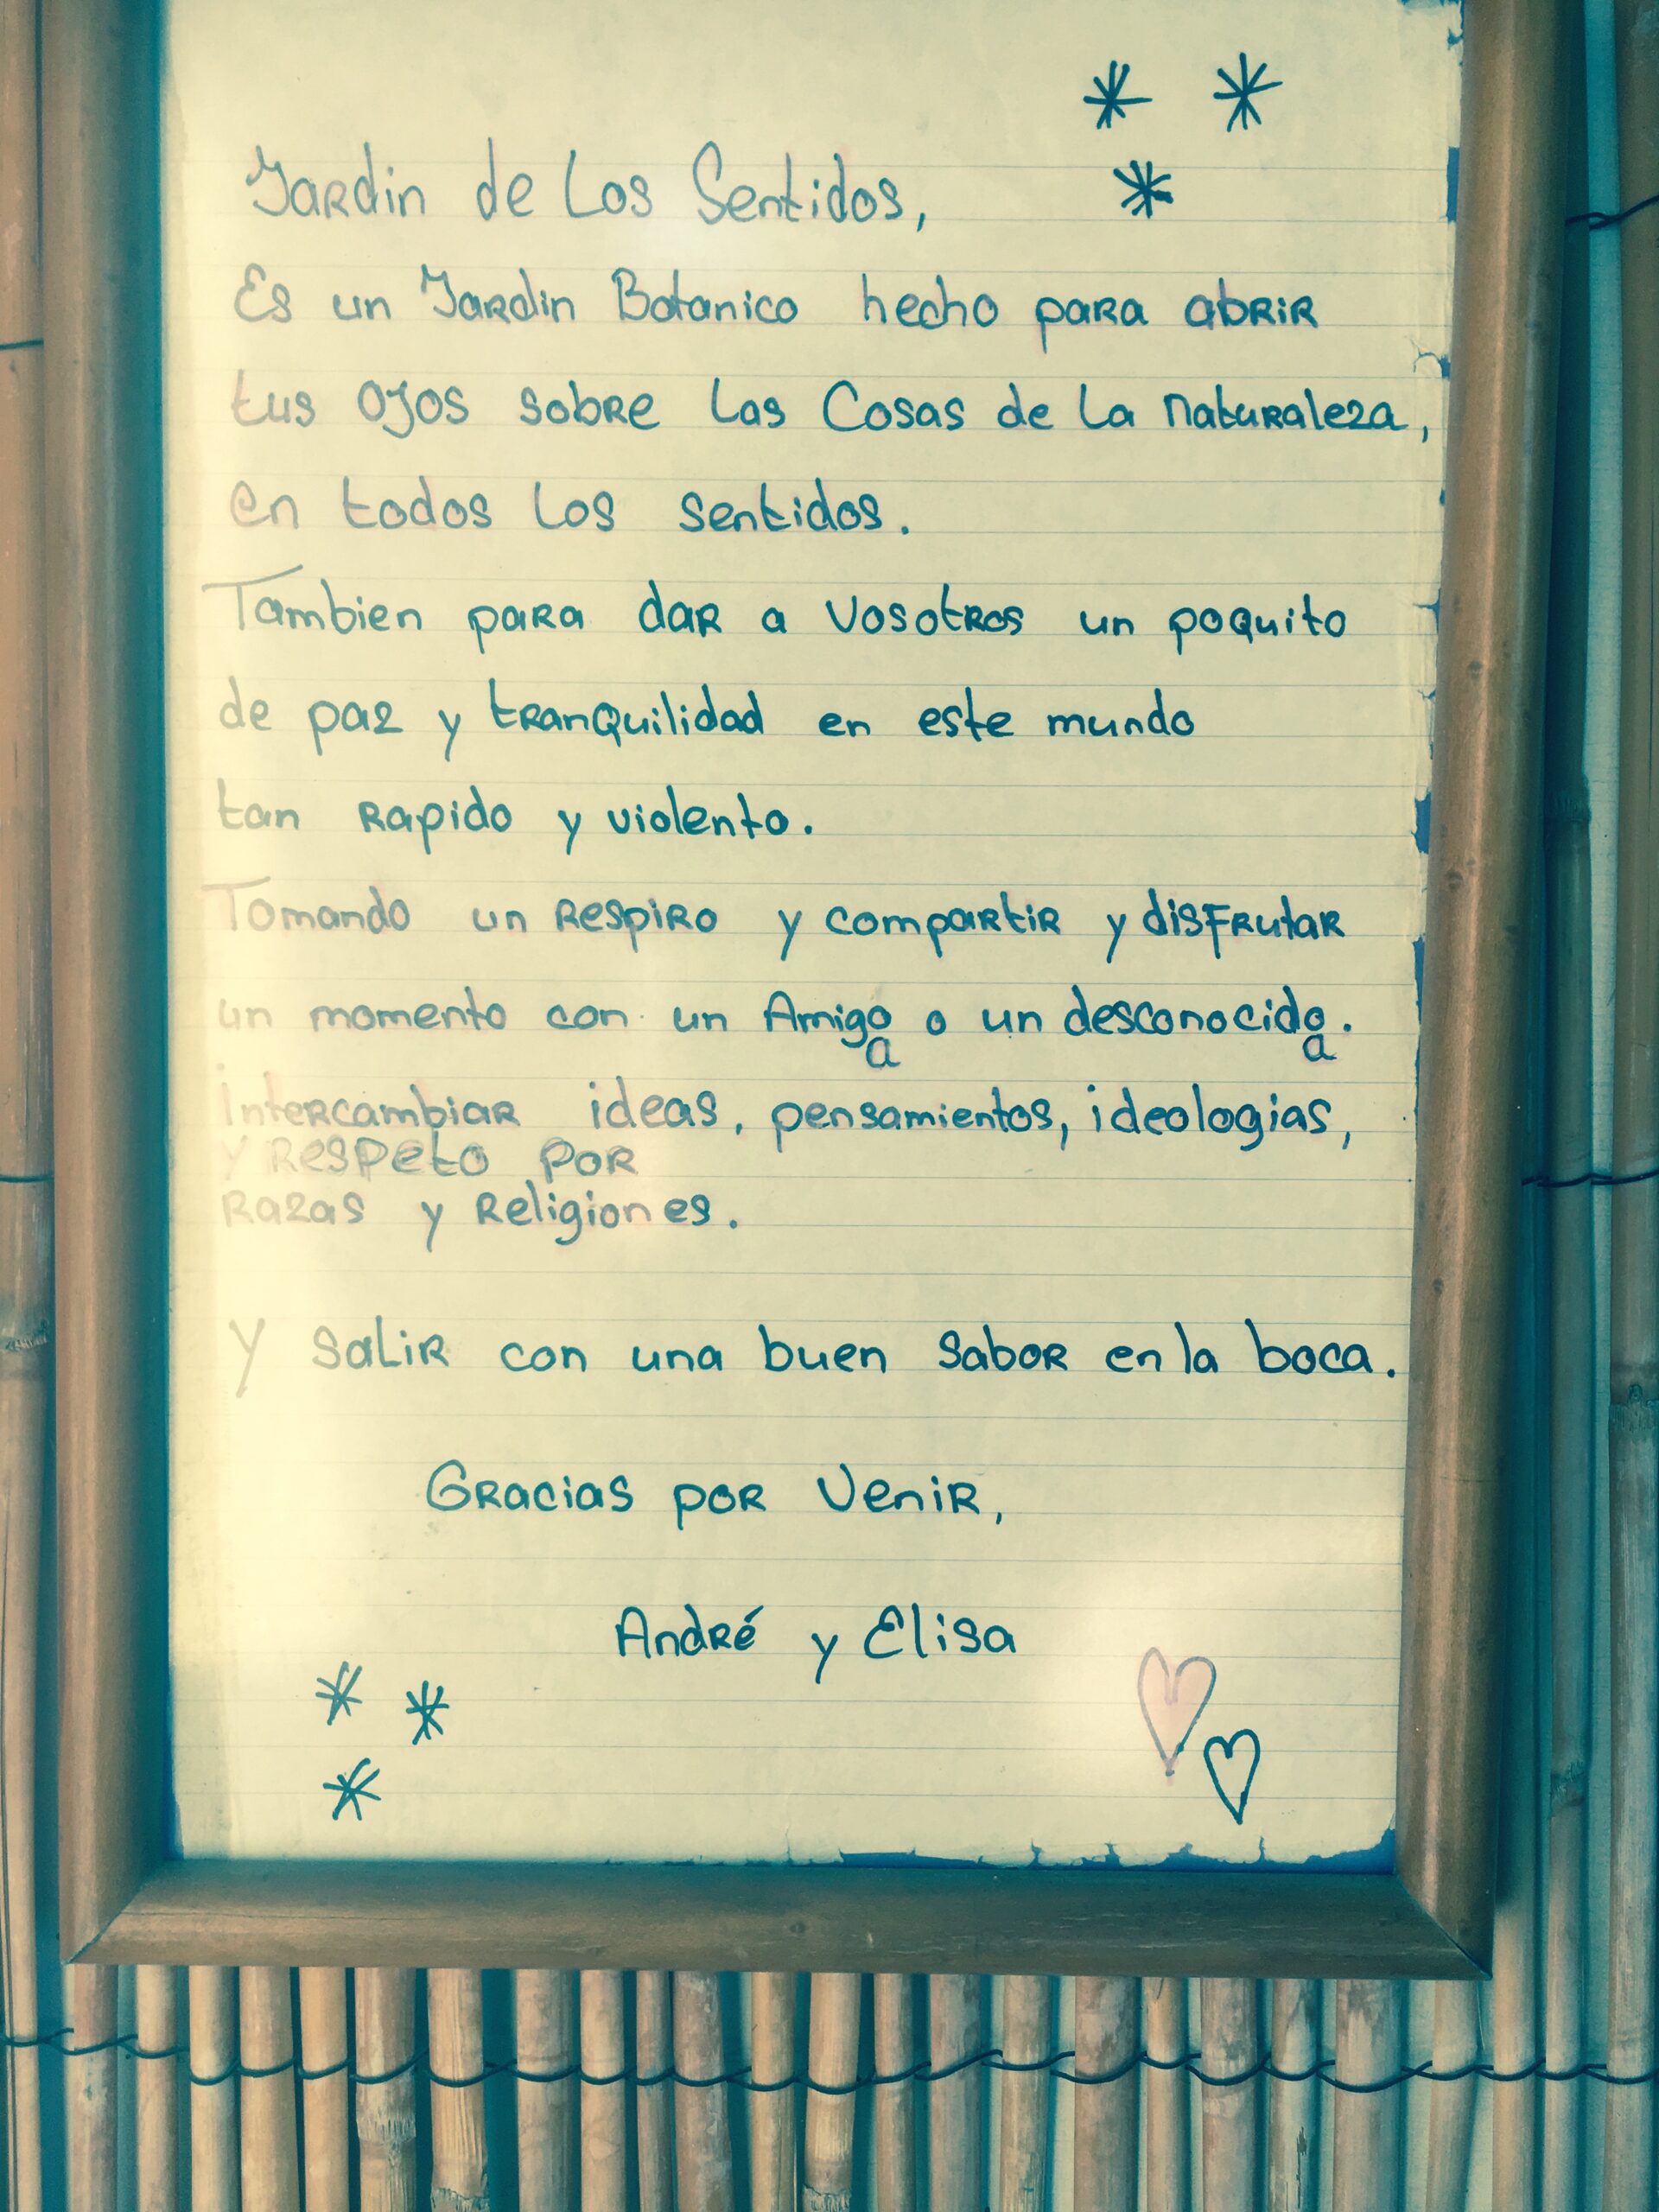 Jardin de Los Sentidos,
Es un Jardin Botanico hecho para abrir
tus ojos sobre Las Cosas de La naturaleza,
en todos los sentidos.
Tambien para dar a Vosotros un poquito
de paz y tranquilidad en este mundo
tan rapido y violento.
Tomando un respiro y compartir y disfrutar
un momento con un Amigo o un desconocido.
a a
intercambiar ideas, pensamientos, ideologias,
y respeto por
razas y religiones.
Y salir con una buen sabor en la boca.
Gracias por Venir,
André y Elisa